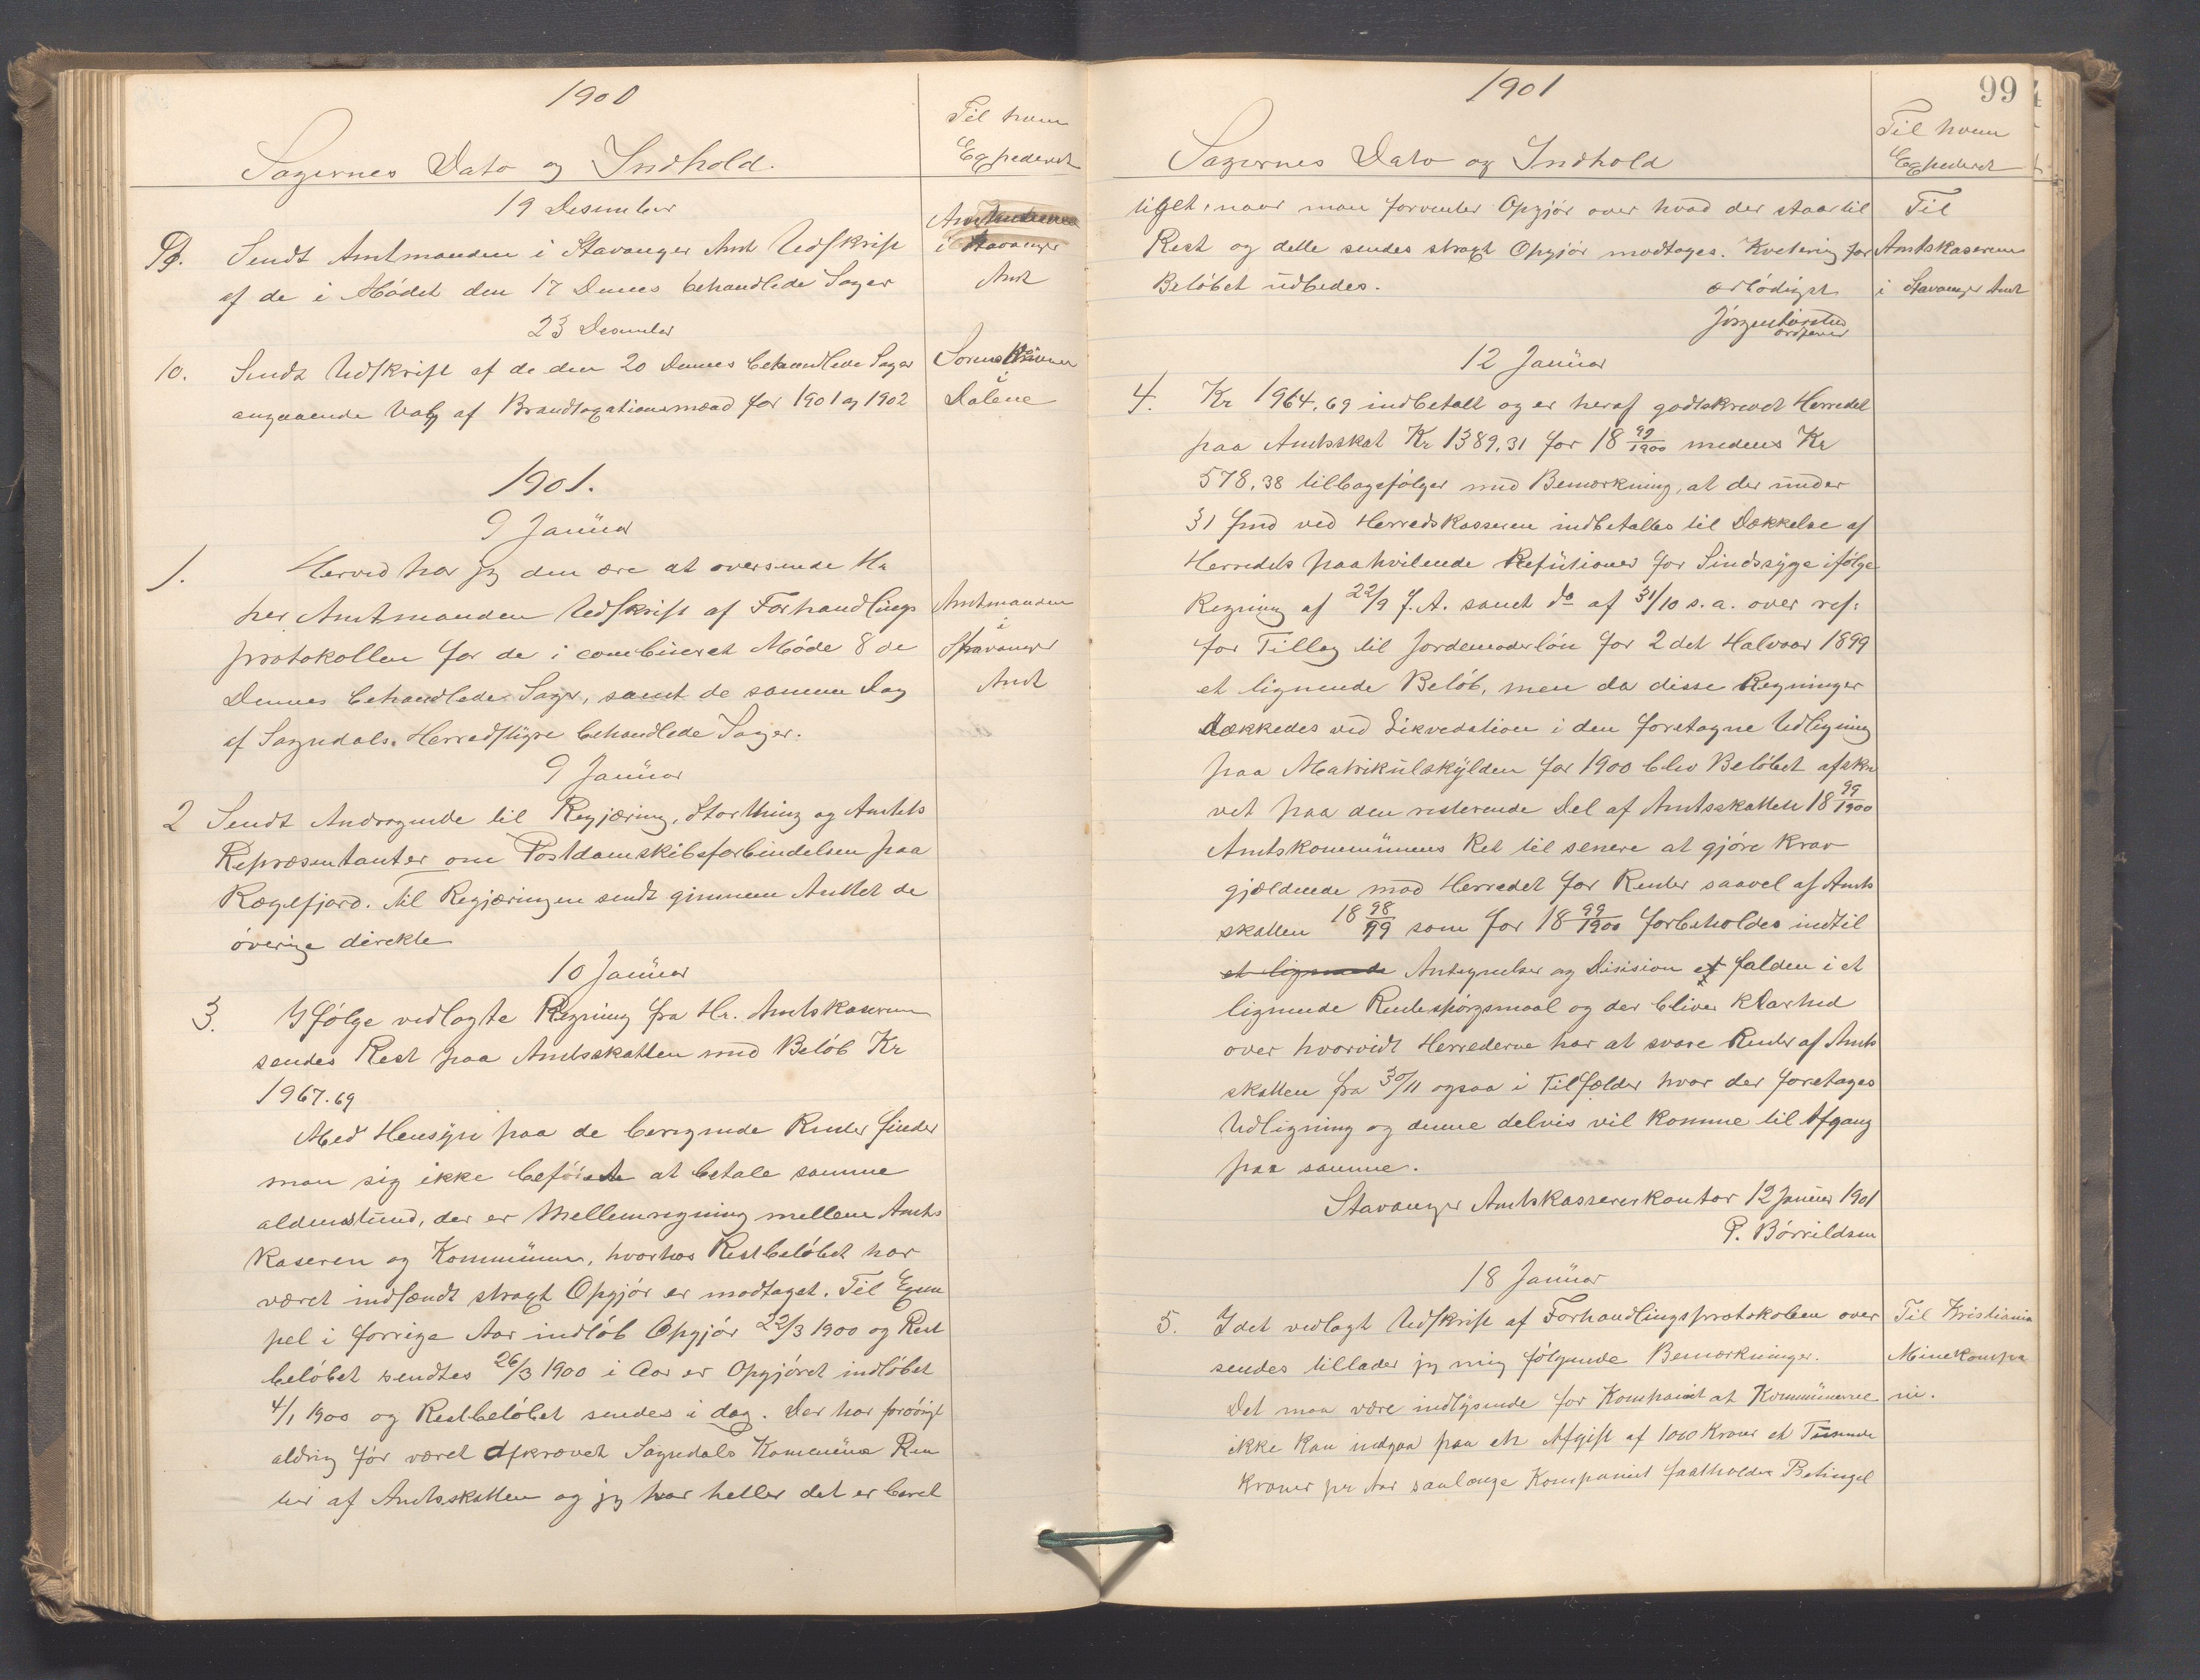 1900
Sagernes Dato og Indhold.
Til hvem
Expederet
19 Desember
9. Sendt Amtmanden i Stavanger Amt Udskrift
af de i Mødet den 17 Dennes behandlede Sager
Amtmanden
i Stavanger
Amt
23 Desember
10. Sendt Udskrift af de den 20 Dennes behandlede Sager
angaaende Valg af Brandtaxationsmænd for 1901 og 1902
Sorenskriveren
i
Dalene
1901.
9 Januar
1. Herved har jeg den ære at oversende Hr
her Amtmanden Udskrift af Forhandlings
protokollen for de i combineret Møde 8 de
Dennes behandlede Sager, samt de samme Dag
af Sogndals Herredstyre behandlede Sager.
Amtmanden
i
Stavanger
Amt
9 Januar
2 Sendt Andragende til Regjæring, Storthing og Amtets
Repræsentanter om Postdamskibsforbindelsen paa
Rægefjord. Til Regjæringen sendt gjennem Amtet de
øverige direkte
10 Januar
3. Ifølge vedlagte Regning fra Hr. Amtskaseren
sendes Rest paa Amtsskatten med Beløb Kr
1967.69
Med Hensyn paa de beregnede Renter finder
man sig ikke beføiede at betale samme
aldenstund, der er Mellemregning mellem Amts
kaseren og Kommunen, hvorhos Restbeløbet har
været indsendt straxt Opgjør er modtaget. Til Exem
pel i forrige Aar indløb Opgjør 22/3 1900 og Rest
beløbet sendtes 26/3 1900 i Aar er Opgjøret indløbet
4/1 1900 og Restbeløbet sendes i dag. Der har forøvrigt
aldrig før været afkrævet Sogndals Kommune Ren
ter af Amtsskatten og jeg har heller det er beret
1901
99
Sagernes Dato og Indhold
Til hvem
Expederet
tiget, naar man forventer Opgjør over hvad der staar til
Rest og dette sendes straxt Opgjør modtages. Kvitering for
Beløbet udbedes.
ærbødigst
Jørgen
ordfører
Til
Amtskaseren
i Stavanger Amt
12 Januar
4. Kr 1964,69 indbetalt og er heraf godtskrevet Herredet
paa Amtsskat Kr 1389.31 for 18 99/1900 medens Kr
578,38 tilbagefølger med Bemærkning, at der under
31 fmd ved Herredskasseren indbetaltes til Dækkelse af
Herredets paahvilende Refutioner for Sindssyge ifølge
Regning af 22/9 f.A. samt do af 31/10 s.a. over ref:
for Tillæg til Jordemoderløn for 2 det Halvaar 1899
et lignende Beløb, men da disse Regninger
dækkedes ved Likvedation i den foretagne Udligning
paa Matrikulskylden for 1900 blev Beløbet afskre
vet paa den resterende Del af Amtsskatten 18 99/1900
Amtskommunens Ret til senere at gjøre Krav
gjældende mod Herredet for Renter saavel af Amts
skatten 18 98/99 som for 18 99/1900 forbeholdes indtil
et lignende Antegnelser og Disision er falden i et
lignende Rentespørgsmaal og der bliver klarhed
over hvorvidt Herrederne har at svare Renter af Amts
skatten fra 30/11 ogsaa i Tilfælder hvor der foretages
Udligning og denne delvis vil komme til Afgang
paa samme.
Stavanger Amtskassererkontor 12 Januar 1901
P. Børrildsen
18 Januar
5. Idet vedlagt Udskrift af Forhandlingsprotokolen over
sendes tillader jeg mig følgende Bemærkninger.
Det maa være indlysende for Kompaniet at Kommunerne
ikke kan indgaa paa en Afgift af 1000 Kroner et Tusinde
kroner pr Aar saalænge Kompaniet fastholder Betingel
Til Kristiania
Minekompa
ni.